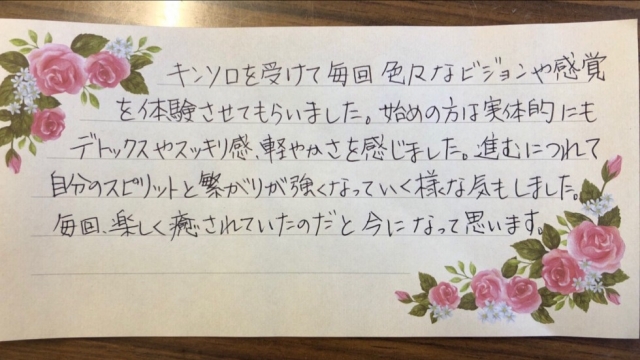 キンソロを受けて毎回色々なビジョンや感覚
を体験させてもらいました。始めの方は実体的にも
デトックスやスッキリ感、軽やかさを感じました。進むにつれて
自分のスピリットと繋がりが強くなっていく様な気もしました。
毎回、楽しく癒されていたのだと今になって思います。